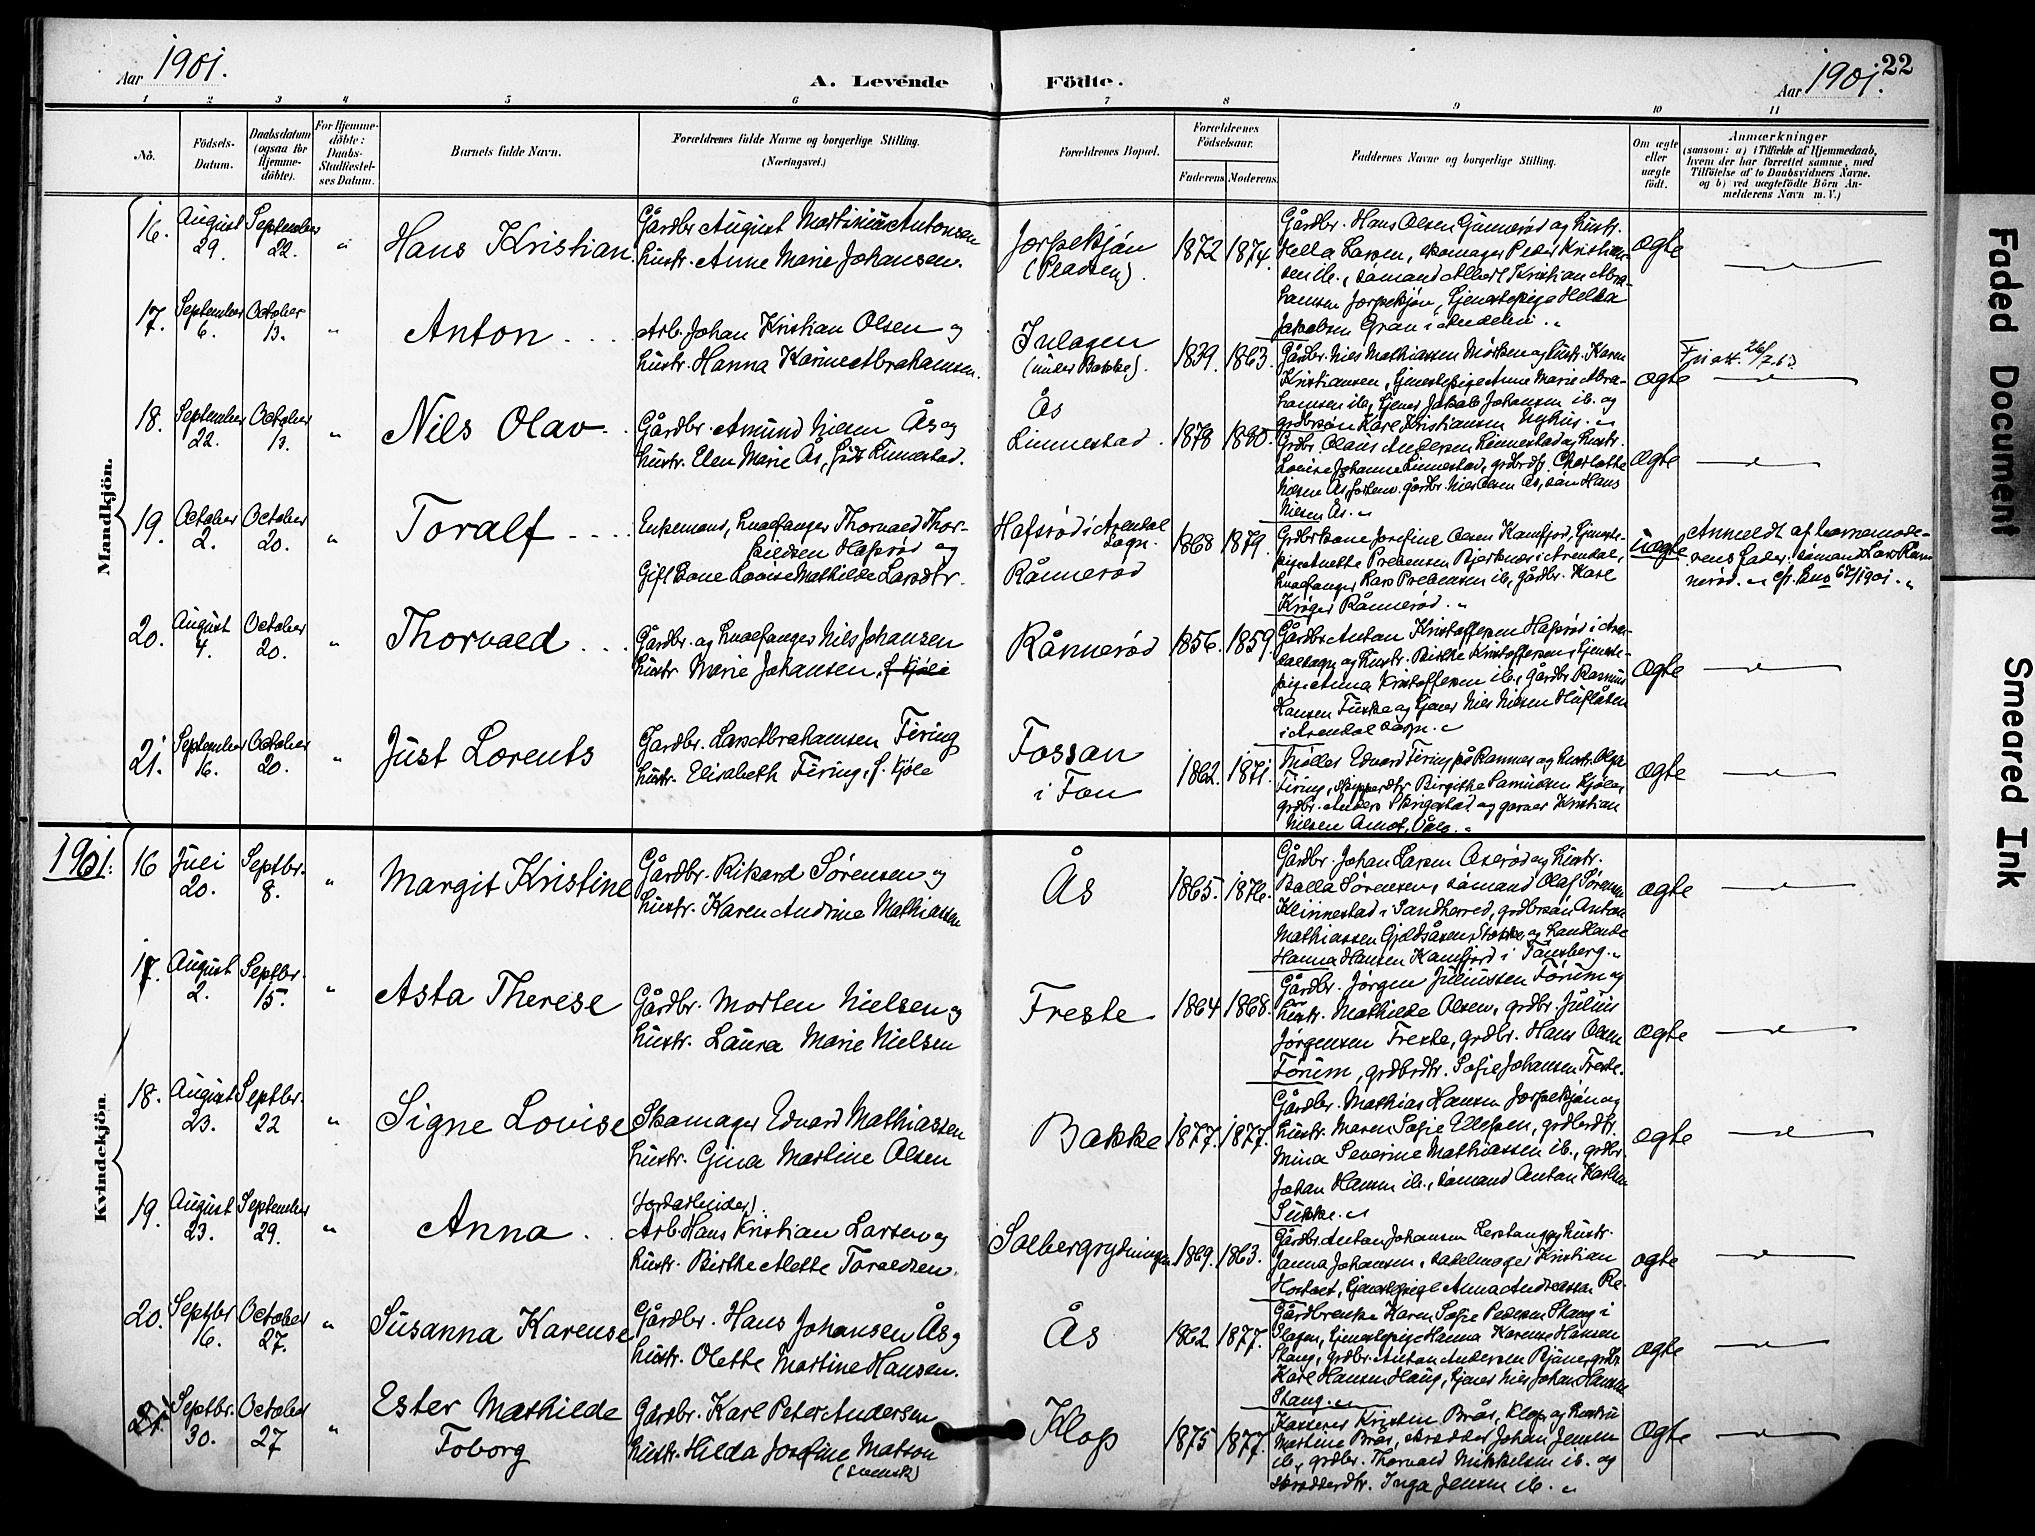 Aar 1901.
A. Levende
Födte.
Aar 1901.
22
1 2 3 4 5 6 7 8 9 10 11
No.
Födsels-
Datum.
Daabsdatum
(ogsaa for
Hjemme-
döbte).
For Hjemme-
döbte:
Daabs-
Stadfæstel-
ses Datum.
Barnets fulde Navn.
Forældrenes fulde Navne og borgerlige Stilling.
(Næringsvei.)
Forældrenes Bopæl.
Forældrenes
Födselsaar.
Faderens Moderens.
Faddernes Navne og borgerlige Stilling.
Om ægte
eller
uægte
født.
Anmærkninger
(saasom: a) i Tilfælde af Hjemmedaab,
hvem der har forrettet samme, med
Tilføielse af to Daabsvidners Navne.
og b) ved uægtefödte Börn An-
melderens Navn m. V.)
Mandkjön.
16. August 29. September 22. „ Hans Kristian.
Gårdbr. August Antonsen
hustr. Anne Marie Johansen.
(Pladsen).
1872 1874.
Gårdbr. Hans Olsen Gunnerød og hustr.
Larsen, skomager Peder Kristian-
sen ib., sømand Albert Kristian Abra-
hamsen
Jakobsen Gran i
ægte
17. September 6. October 13. „ Anton
Arb. Johan Kristian Olsen og
hustr. Hanna Karine Abrahamsen.
(under Bakke).
1839. 1863.
Gårdbr. Niels Mathiassen og hustr. Karen
Kristiansen, tjenestepige Anne Marie Abra-
hamsen ib., tjener Jakob Johansen ib. og
grdbrsøn Karl Kristiansen
ægte
18. September 22. October 13. „ Nils Olav
Gårdbr. Amund Nilsen Ås og
hustr. Elen Marie Ås, født Linnestad.
Ås
Linnestad.
1878 1880.
Grdbr. Olaus Andersen Linnestad og hustr.
Lovise Johanne Linnestad, Charlotte
Nilsen Ås, gårdbr. Niels Olsen Ås, Hans
Nilsen Ås.
ægte
19. October 2. October 20. „ Toralf
Enkemand, hvalfanger Thorvald Thor-
kildsen Hafsrød og
Gift Kone Lovise Mathilde Larsdtr.
Hafsrød i Arendal
Sogn.
Rånnerød
1868 1879.
Grdbrkone Josefine Olsen Kamfjord, tjeneste-
pige Anette Prebensen i Arendal,
hvalfanger Lars Prebensen ib., gårdbr. Karl
Krøger Rånnerød.
uægte
Anmeldt af barnemode-
rens fader: sømand Lars Rån-
nerød.
20. August 4. October 20. „ Thorvald
Gårdbr. og hvalfanger Nils Johansen
hustr. Marie Johansen, f. Kjøle
Rånnerød
1856. 1859.
Gårdbr. Anton Kristoffersen Hafsrød i Aren-
dal sogn og hustr. Birthe Kristoffersen, tjeneste-
pige Anna Kristoffersen ib., gårdbr. Rasmus
Hansen og tjener Niels Nielsen
i Arendal Sogn.
ægte
21. September 16. October 20. „ Just Lorents
Gårdbr. Lars Abrahamsen Firing
hustr. Elisabeth Firing, f. Kjøle
Fossan
i Fon
1862. 1871.
Møller Edvard Firing på Ramnes og hustr. Olga
Firing, Birgithe Samuelsen Kjøle,
grdbr. Anders og garver Kristian
Nilsen
ægte
1901.
Kvindekjön.
16 Juli 20. Septbr. 8. „ Margit Kristine
Gårdbr. Rikard Sørensen og
hustr. Karen Andrine Mathiassen
Ås
1865. 1876.
Gårdbr. Johan Larsen og hustr.
Sørensen, sømand Olaf Sørensen
Klinnestad i Sandherred, grdbrsøn Anton
Mathiassen Gjeldsåsen, Stokke og handlende
Hanna Hansen Kamfjord i Tønsberg.
ægte
17. August 2. Septbr. 15. „ Asta Therese
Gårdbr. Morten Nielsen og
hustr. Laura Marie Nielsen
Freste
1864 1868.
Gårdbr. Jørgen Juliussen Førum og
hustr. Mathilde Olsen, grdbr. Julius
Jørgensen Freste, grdbr. Hans Olsen
Førum, grdbrdtr. Sofie Johansen Freste.
ægte
18. August 23. Septbr. 22 „ Signe Lovise
Skomager Edvard Mathiassen
hustr. Gina Martine Olsen
Bakke
1877. 1877.
Gårdbr. Mathias Hansen og
hustr. Maren Sofie Ellefsen, grdbrdtr.
Mina Severine Mathiassen ib., grdbr.
Johan Hansen ib., sømand Anton Karlsen
Sukke.
ægte
19. August 23. September 29. „ Anna
(Jordarbeider).
Arb. Hans Kristian Larsen og
hustr. Birthe Alette Toraldsen.
Solbergrydningen
1869. 1863.
Gårdbr. Anton Johansen og hustr.
Janna Johansen, sadelmager Kristian
tjenestepige Anna Andreassen
ægte
20. Septbr 16. October 27. „ Susanna Karense
Gårdbr. Hans Johansen Ås og
hustr. Olette Martine Hansen.
Ås
1862 1877.
Gårdbrenke Karen Sofie Pedersen Skaug i
Slagen, tjenestepige Hanna Karense Hansen
Skaug, grdbr. Anton Andersen grdbr.
Karl Hansen Haug, tjener Nils Johan Hansen
Skaug.
ægte
21. Septbr. 30. October 27 „ Ester Mathilde
Toborg
Gårdbr. Karl Peter Andersen
hustr. Hilda Josefine Matson
(svensk)
Klop
1875 1877.
Kasserer Kristen Brås, Klop og hustru
Martine Brås, skrædder Johan Jensen
ib., grdbr. Thorvald Mikkelsen ib. og
skrædderdtr. Inga Jensen ib.
ægte
Faded Document
Smeared Ink